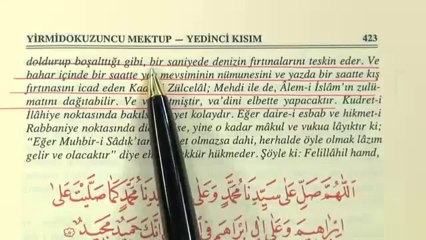 YİRMİDOKUZUNCU MEKTUP — YEDİNCİ KISIM 423
doldurup boşalttığı gibi, bir saniyede denizin fırtınalarını teskin eder. Ve
bahar içinde bir saatte yaz mevsiminin nümunesini ve yazda bir saatte kış
fırtınasını icad eden Kadîr-i Zülcelâl; Mehdi ile de, Âlem-i İslâm'ın zulü-
matını dağıtabilir. Ve va'detmiştir, va'dini elbette yapacaktır. Kudret-i
İlahiye noktasında bakılsa, gayet kolaydır. Eğer daire-i esbab ve hikmet-i
Rabbaniye noktasında düşünülse, yine o kadar mâkul ve vukua lâyıktır ki;
"Eğer Muhbir-i Sâdık'tan rivayet olmazsa dahi, herhalde öyle olmak lâzım
gelir ve olacaktır" diye ehl-i tefekkür hükmeder. Şöyle ki: Felillâhil hamd,
اَللّٰهُمَّ صَلِّ عَلٰى سَيِّدِنَا مُحَمَّدٍ وَعَلٰى سَيِّدِنَا مُحَمَّدٍ كَمَا صَلَّيْتَ عَلٰى
اِبْرَاهِيمَ وَعَلٰى اٰلِ اِبْرَاهِيمَ فِى اِنَّكَ حَمِيدٌ مَجِيدٌ